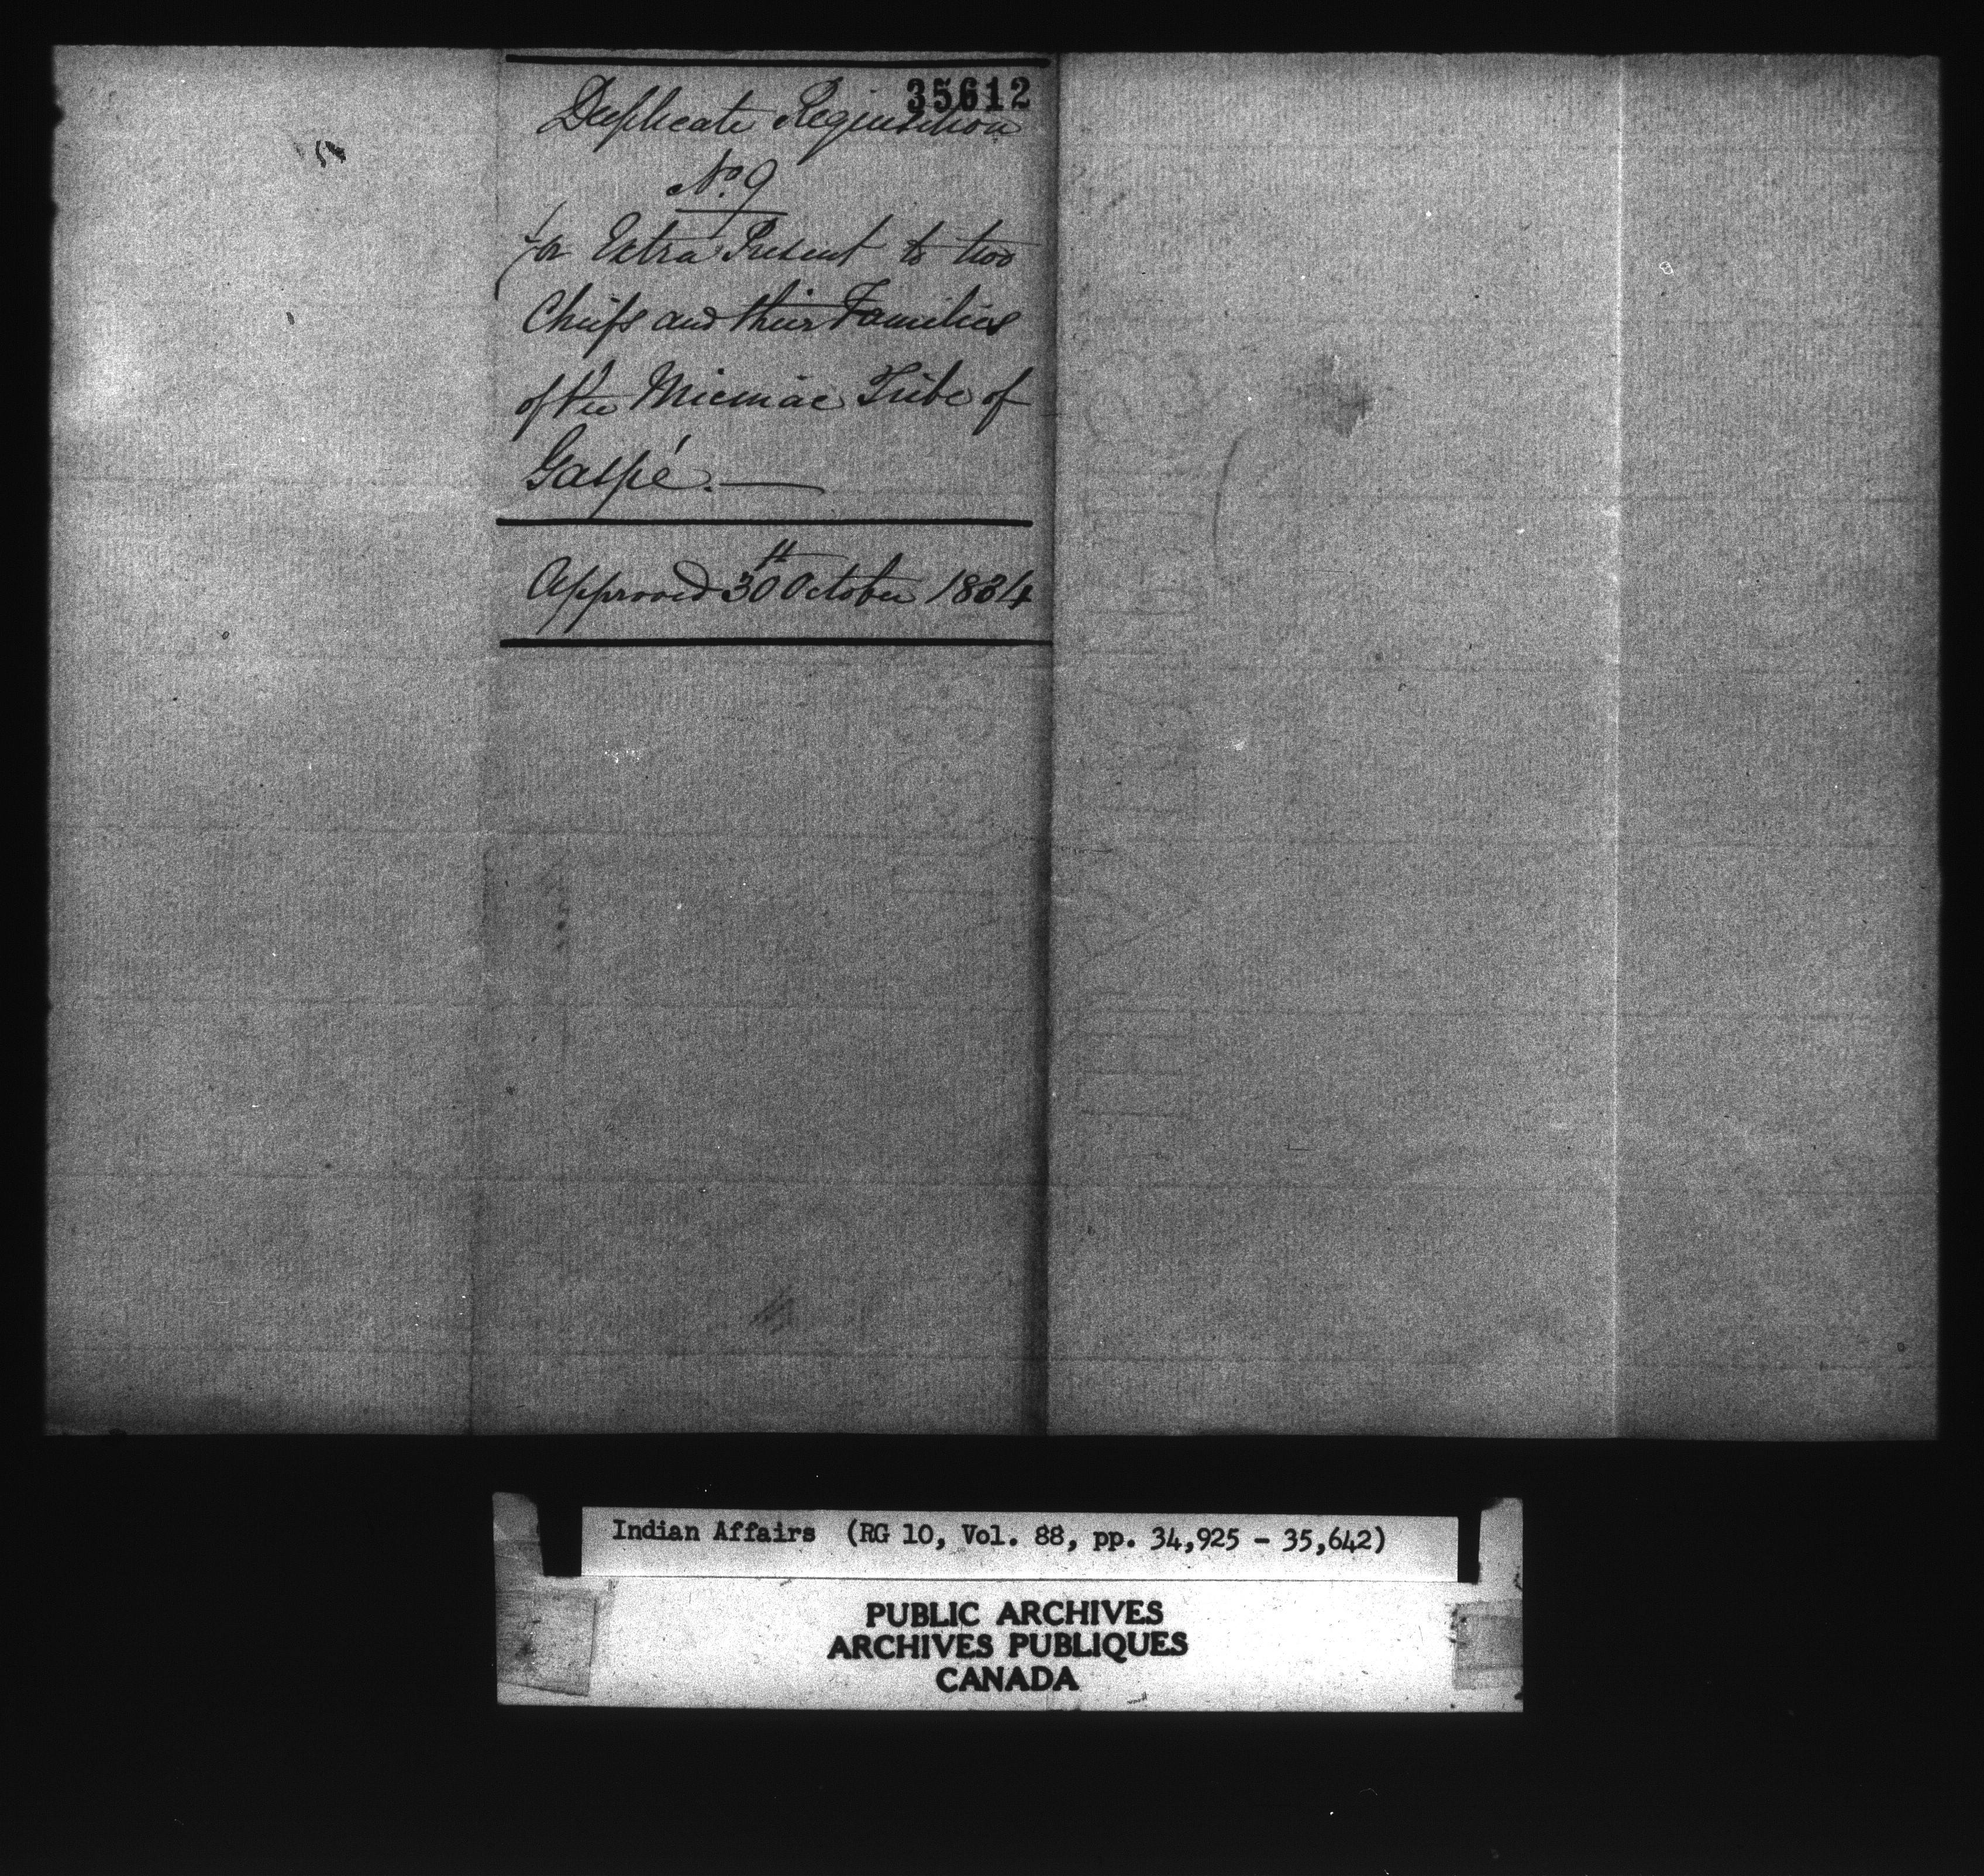 35612
Duplicate Requisition
No. 9
for Extra Present to two
Chiefs and their Families
of the Micmac Tribe of
Gaspé. —
Approved 30th October 1834
Indian Affairs (RG 10, Vol. 88, pp. 34,925 - 35,642)
PUBLIC ARCHIVES
ARCHIVES PUBLIQUES
CANADA